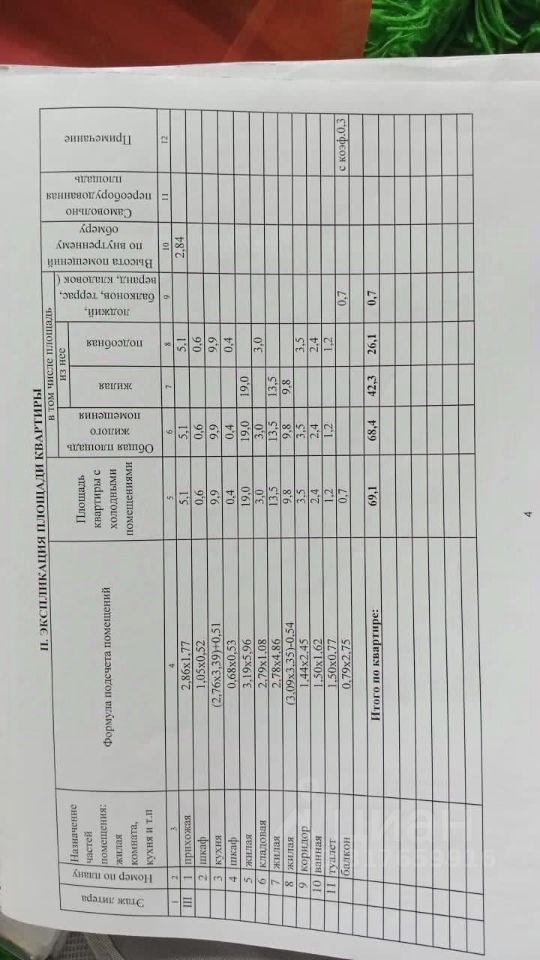 II. ЭКСПЛИКАЦИЯ ПЛОЩАДИ КВАРТИРЫ
Этаж литера | Номер по плану | Назначение частей помещения: жилая комната, кухня и т.п | Формула подсчета помещений | Площадь квартиры с холодными помещениями | в том числе площадь | Высота помещений по внутреннему обмеру | Самовольно переоборудованная площадь | Примечание
Общая площадь жилого помещения | из нее | лоджий, балконов, террас, веранд, кладовок (
жилая | подсобная
1 | 2 | 3 | 4 | 5 | 6 | 7 | 8 | 9 | 10 | 11 | 12
III | 1 | прихожая | 2,86x1,77 | 5,1 | 5,1 | 5,1 | 2,84
2 | шкаф | 1,05x0,52 | 0,6 | 0,6 | 0,6
3 | кухня | (2,76x3,39)+0,51 | 9,9 | 9,9 | 9,9
4 | шкаф | 0,68x0,53 | 0,4 | 0,4 | 0,4
5 | жилая | 3,19x5,96 | 19,0 | 19,0 | 19,0
6 | кладовая | 2,79x1,08 | 3,0 | 3,0 | 3,0
7 | жилая | 2,78x4,86 | 13,5 | 13,5 | 13,5
8 | жилая | (3,09x3,35)-0,54 | 9,8 | 9,8 | 9,8
9 | коридор | 1,44x2,45 | 3,5 | 3,5 | 3,5
10 | ванная | 1,50x1,62 | 2,4 | 2,4 | 2,4
11 | туалет | 1,50x0,77 | 1,2 | 1,2 | 1,2
балкон | 0,79x2,75 | 0,7 | 0,7 | с коэф.0,3
Итого по квартире: | 69,1 | 68,4 | 42,3 | 26,1 | 0,7
4